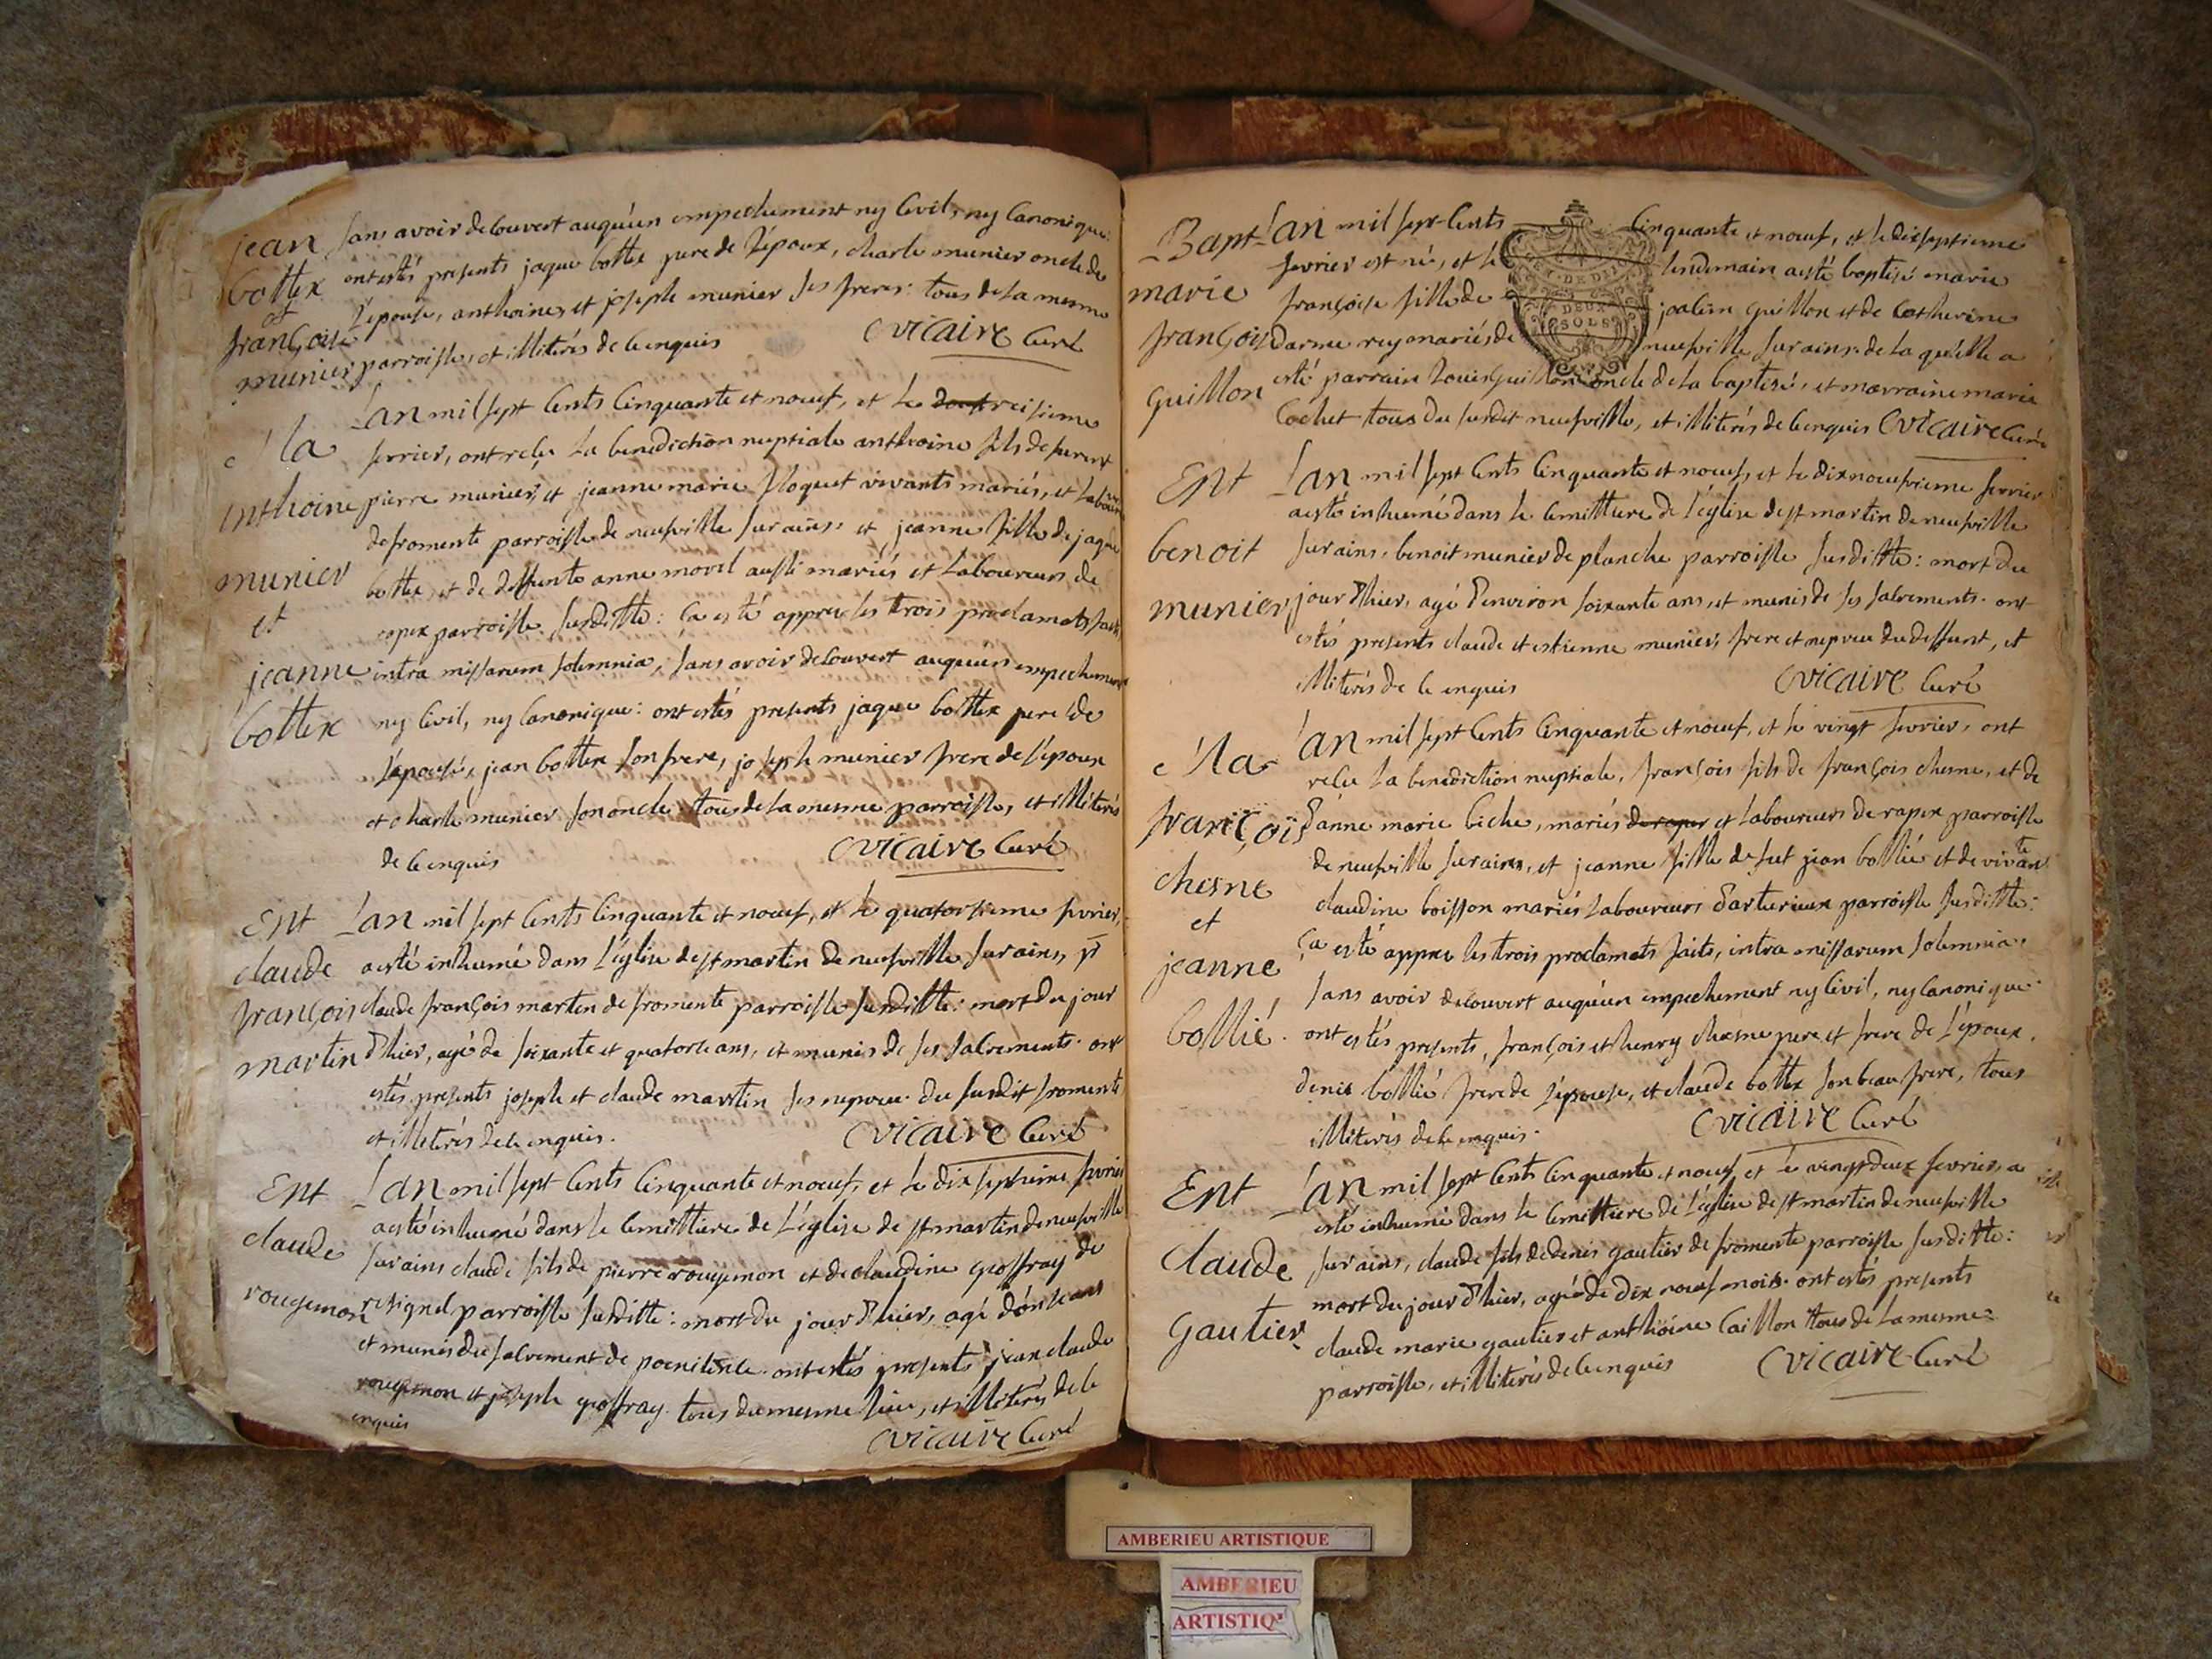 jean
bottex
et
françoise
munier
sans avoir decouvert auqu'un empechement ny Civil, ny Canonique:
ont estés presents jaque bottex pere de l'époux, charle munier oncle de
l'épouse, anthoine, et joseph munier ses freres: tous de la mesme
parroisse, et illiterés de ce enquis
Cvicaire Curé
é la
anthoine
munier
et
jeanne
bottex
L'an mil sept Cents Cinquante et nœuf, et le treisieme
fevrier, ont reçu la benediction nuptiale anthoine fils de furent
pierre munier, et jeanne marie floquet vivants mariés, et
de fromente parroisse de neufville sur ains, et jeanne fille de jaque
bottex, et de deffunte anne morel aussi mariés et Laboureurs de
parroisse susditte: ça esté appres les trois proclamats faits,
intra missarum solemnia, sans avoir decouvert auqu'un empechement
ny Civil, ny Canonique: ont estés presents jaque bottex pere de
l'épouse, jean bottex son frere, joseph munier frere de l'époux
et charle munier son oncle tous de la mesme parroisse, et illiterés
de ce enquis
Cvicaire Curé
Ent
claude
françois
martin
L'an mil sept Cents Cinquante et nœuf, et le quatorsieme fevrier,
a esté inhumé dans l'église de st martin de neufville sur ains,
claude françois martin de fromente parroisse susditte: mort du jour
d'hier, agé de soixante et quatorze ans, et munis de ses sacrements. ont
estés presents joseph et claude martin ses nepveu du susdit fromente
et illiterés de ce enquis.
Cvicaire Curé
Ent
claude
rougemon
L'an mil sept Cents Cinquante et nœuf, et le dix septieme fevrier
a esté inhumé dans le Cemittiere de l'église de st martin de neufville
sur ains claude fils de pierre rougemon et de claudine goffray de
resignel parroisse susditte: mort du jour d'hier, agé d'onze ans
et munis du sacrement de poenitence. ont estés presents jean claude
rougemon et joseph goffray. tous du mesme lieu, et illiterés de ce
enquis
Cvicaire Curé
Bapt
marie
françoise
guillon
L'an mil sept Cents Cinquante et nœuf, et le dixseptieme
fevrier est né, et le lendemain a esté baptisé marie
françoise fille de joachim guillon et de Catherine
Darme rey mariés de neufville sur ains: de la qu'elle a
esté parrain Louis guillon oncle de la baptisé, et marraine marie
Cochet tous du susdit neufville, et illiterés de ce enquis Cvicaire Curé
GEN. DE DIJON
DEUX
SOLS
Ent
benoit
munier
L'an mil sept Cents Cinquante et nœuf, et le dixnœufvieme fevrier
a esté inhumé dans le Cemittiere de l'église de st martin de neufville
sur ains, benoit munier de planche parroisse susditte: mort du
jour d'hier, agé d'environ soixante ans, et munis de ses sacrements. ont
estés presents claude et estienne munier, frere et nepveu du deffunt, et
illiterés de ce enquis
Cvicaire Curé
é la
françois
chesne
et
jeanne
bollié
L'an mil sept Cents Cinquante et nœuf, et le vingt fevrier, ont
reçu la benediction nuptiale, françois fils de françois chesne, et de
d'anne marie biche, mariés de rapex et Laboureurs de rapex parroisse
de neufville sur ains, et jeanne fille de fut jean bollié et de vivante
claudine boisson mariés Laboureurs d'arturieux parroisse susditte:
ça esté appres les trois proclamats faits, intra missarum solemnia.
sans avoir decouvert auqu'un empechement ny Civil, ny Canonique.
ont estés presents, françois et henry chesne pere et frere de l'époux,
denis bollié frere de l'épouse, et claude bottex son beau frere, tous
illiterés de ce enquis.
Cvicaire Curé
Ent
Claude
gautier
L'an mil sept Cents Cinquante et nœuf et le vingt deux fevrier, a
esté inhumé dans le Cemittiere de l'église de st martin de neufville
sur ains, claude fils de denis gautier de fromente parroisse susditte:
mort du jour d'hier, agé de dix nœuf mois. ont estés presents
claude marie gautier et anthoine Caillon tous de la mesme
parroisse, et illiterés de ce enquis
Cvicaire Curé
AMBERIEU ARTISTIQUE
AMBERIEU
ARTISTIQ